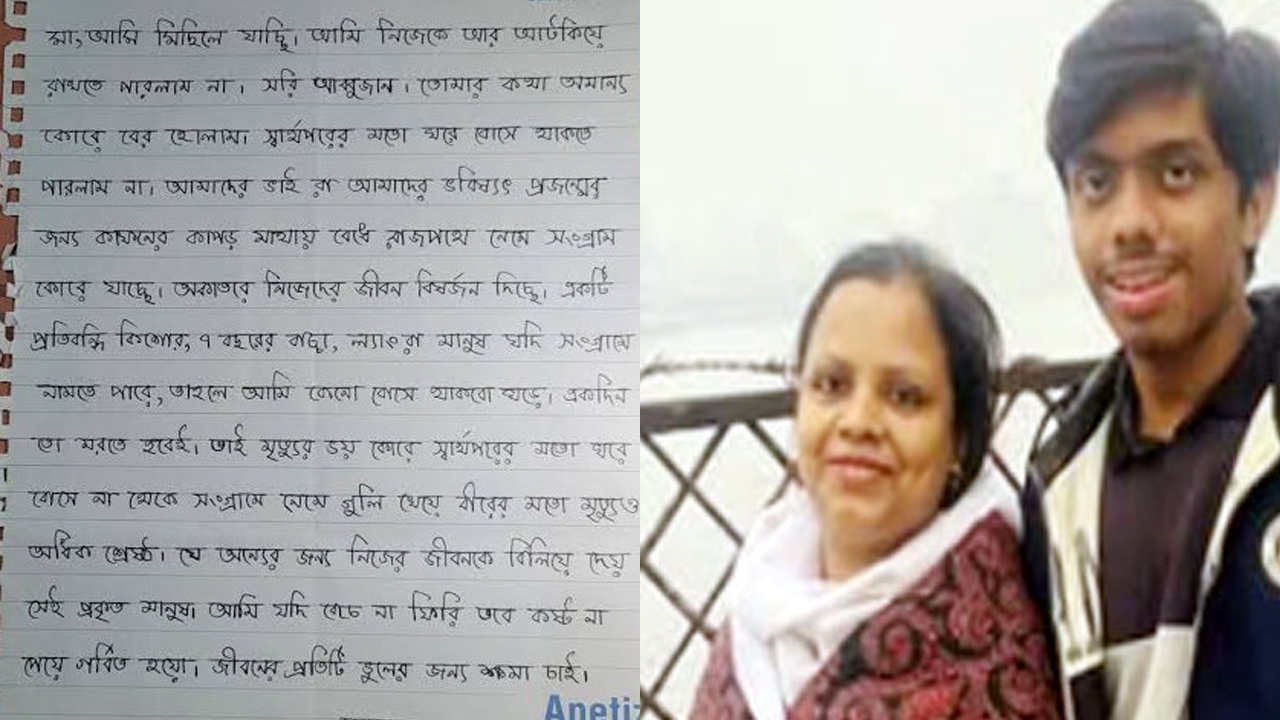 মা, আমি মিছিলে যাচ্ছি। আমি নিজেকে আর আটকিয়ে
রাখতে পারলাম না। সরি আব্বুজান। তোমার কথা অমান্য
কোরে বের হোলাম। স্বার্থপরের মতো ঘরে বোসে থাকতে
পারলাম না। আমাদের ভাই রা আমাদের ভবিষ্যৎ প্রজন্মের
জন্য কাফনের কাপড় মাথায় বেধে রাজপথে নেমে সংগ্রাম
কোরে যাচ্ছে। অকাতরে নিজেদের জীবন বিষর্জন দিচ্ছে। একটি
প্রতিবন্ধি কিশোর, ৭ বছরের বাচ্চা, ল্যাংরা মানুষ যদি সংগ্রামে
নামতে পারে, তাহলে আমি কেনো বোসে থাকবো ঘড়ে। একদিন
তো মরতে হবেই। তাই মৃত্যুর ভয় কোরে স্বার্থপরের মতো ঘরে
বোসে না থেকে সংগ্রামে নেমে গুলি খেয়ে বীরের মতো মৃত্যুও
অধিক শ্রেষ্ঠ। যে অন্যের জন্য নিজের জীবনকে বিলিয়ে দেয়
সেই প্রকৃত মানুষ। আমি যদি বেচে না ফিরি তবে কষ্ট না
পেয়ে গর্বিত হয়ো। জীবনের প্রতিটি ভুলের জন্য ক্ষমা চাই।